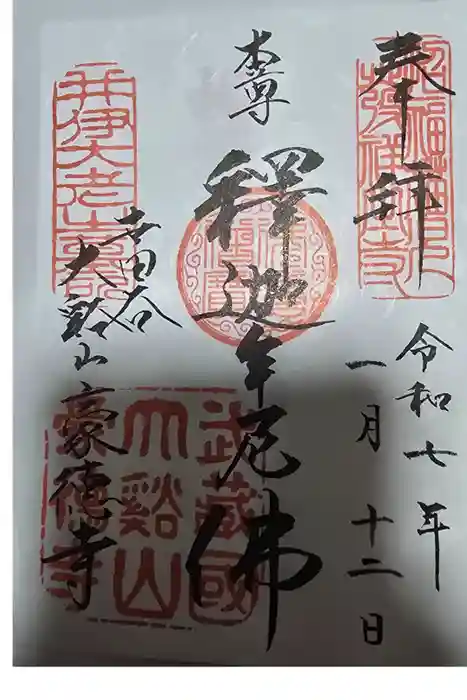 奉拝
令和七年
一月十二日
本尊
釋迦牟尼佛
世田谷
大谿山豪徳寺
招福猫児
發祥之寺
井伊大老之墓所
武蔵國
大谿山
豪徳寺